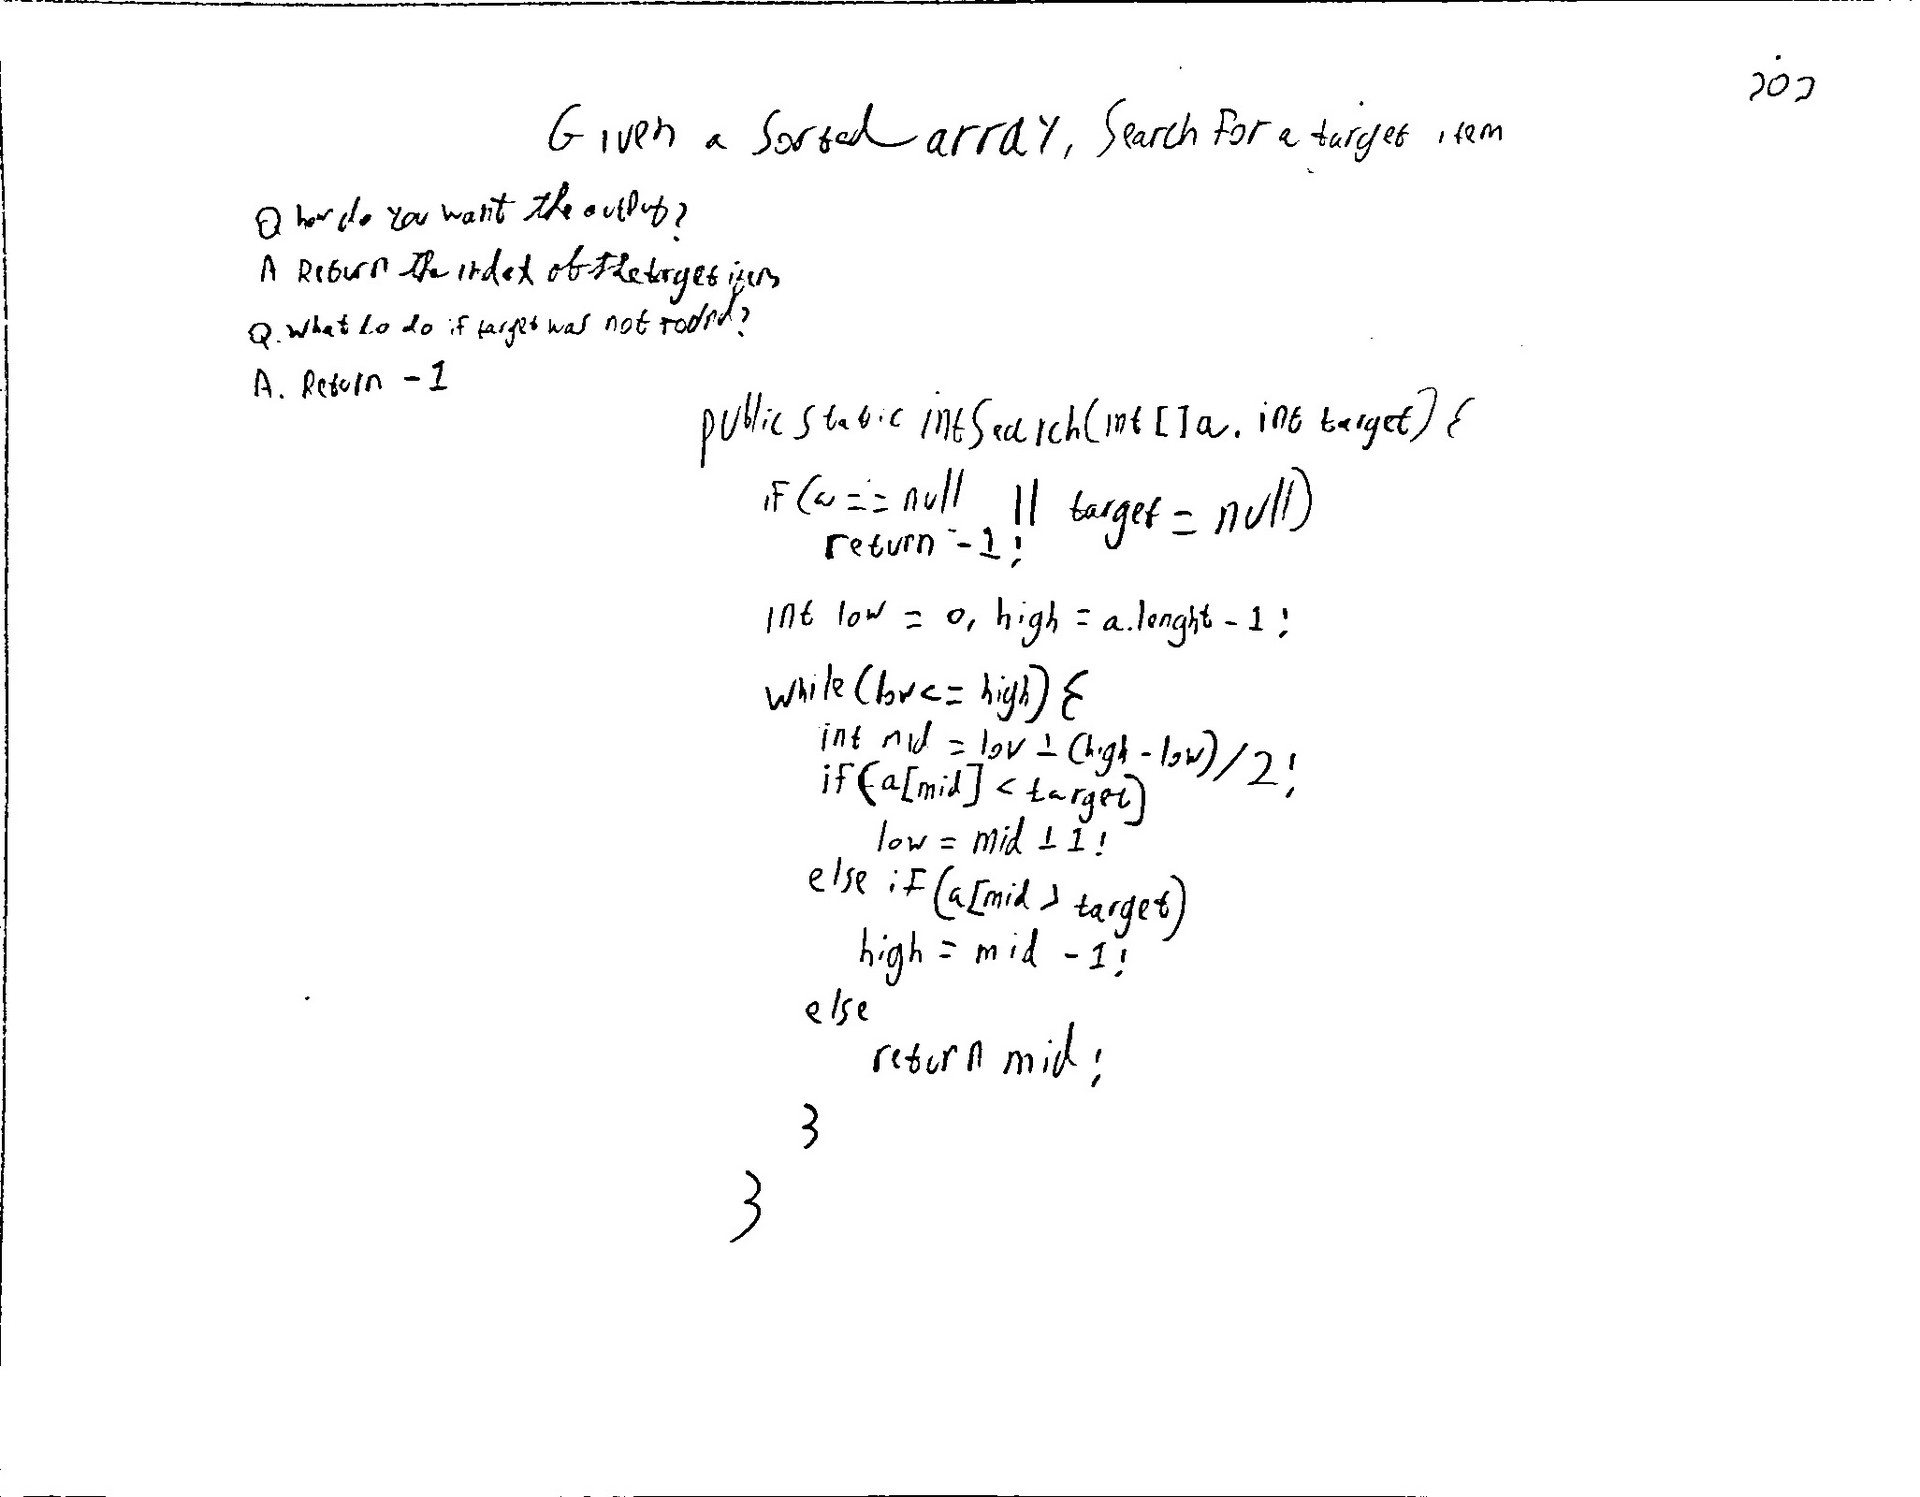 Given a Sorted array, Search For a target item
Q how do you want the output?
A Return the index of the target item
Q. What to do if target was not found?
A. Return -1
public static int Search(int[] a, int target) {
if (a == null || target = null)
return -1;
int low = 0, high = a.lenght - 1;
while (low <= high) {
int mid = low + (high - low) / 2;
if (a[mid] < target)
low = mid + 1;
else if (a[mid > target)
high = mid - 1;
else
return mid;
}
}